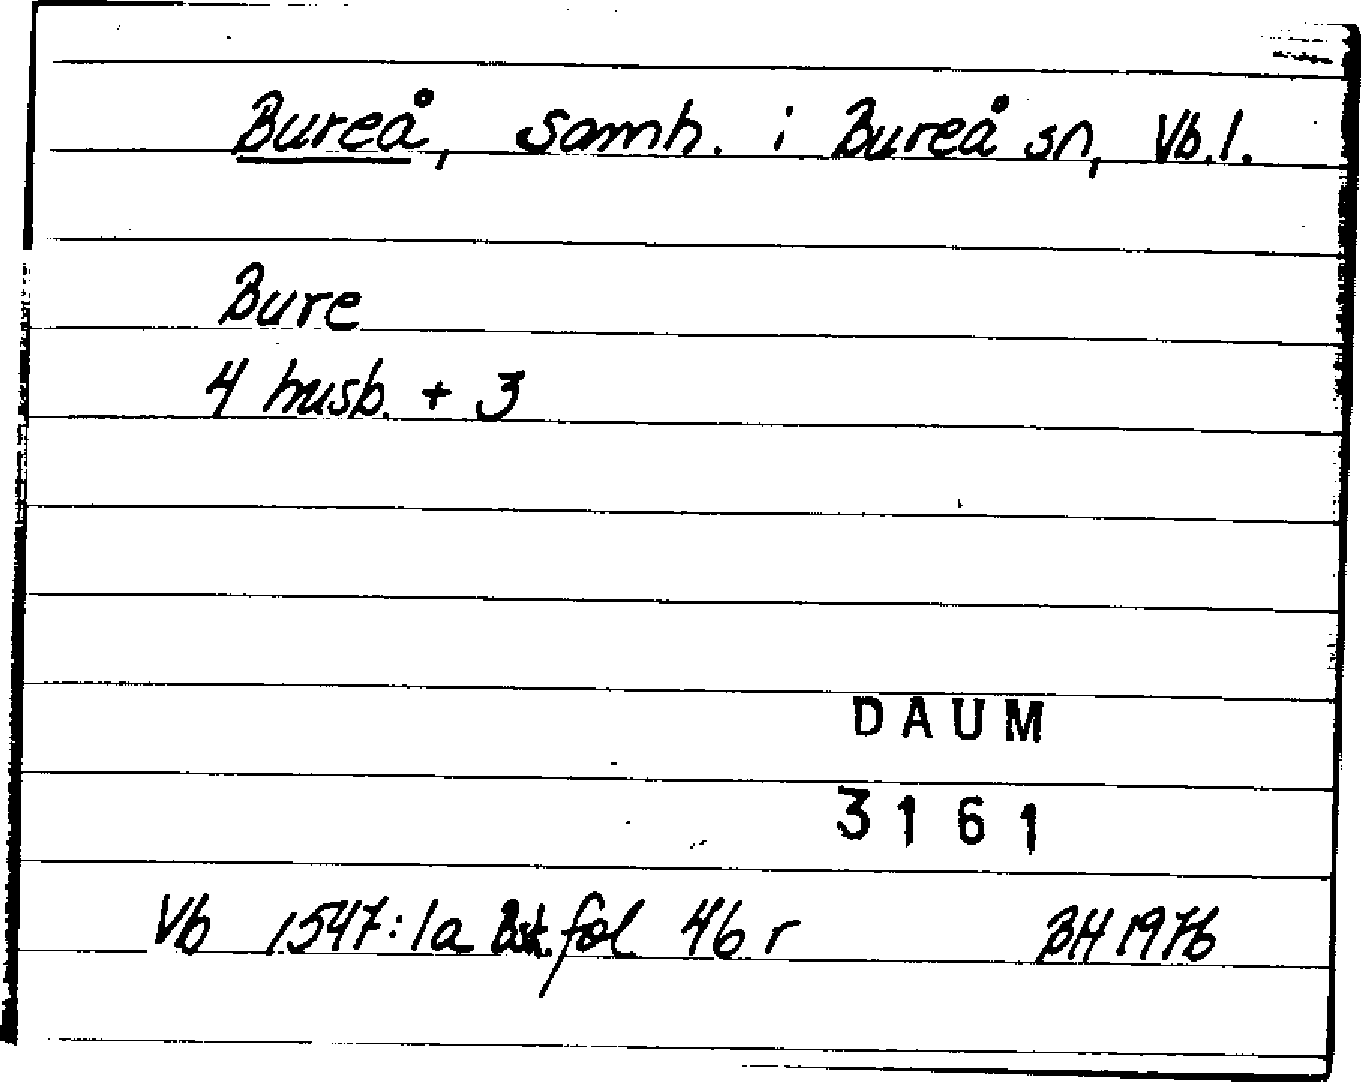 Bureå, samh. i Bureå sn, Vb.l.
Bure
4 husb. + 3
DAUM
3161
Vb 1547:1a Bst. fol 46 r BH 1976